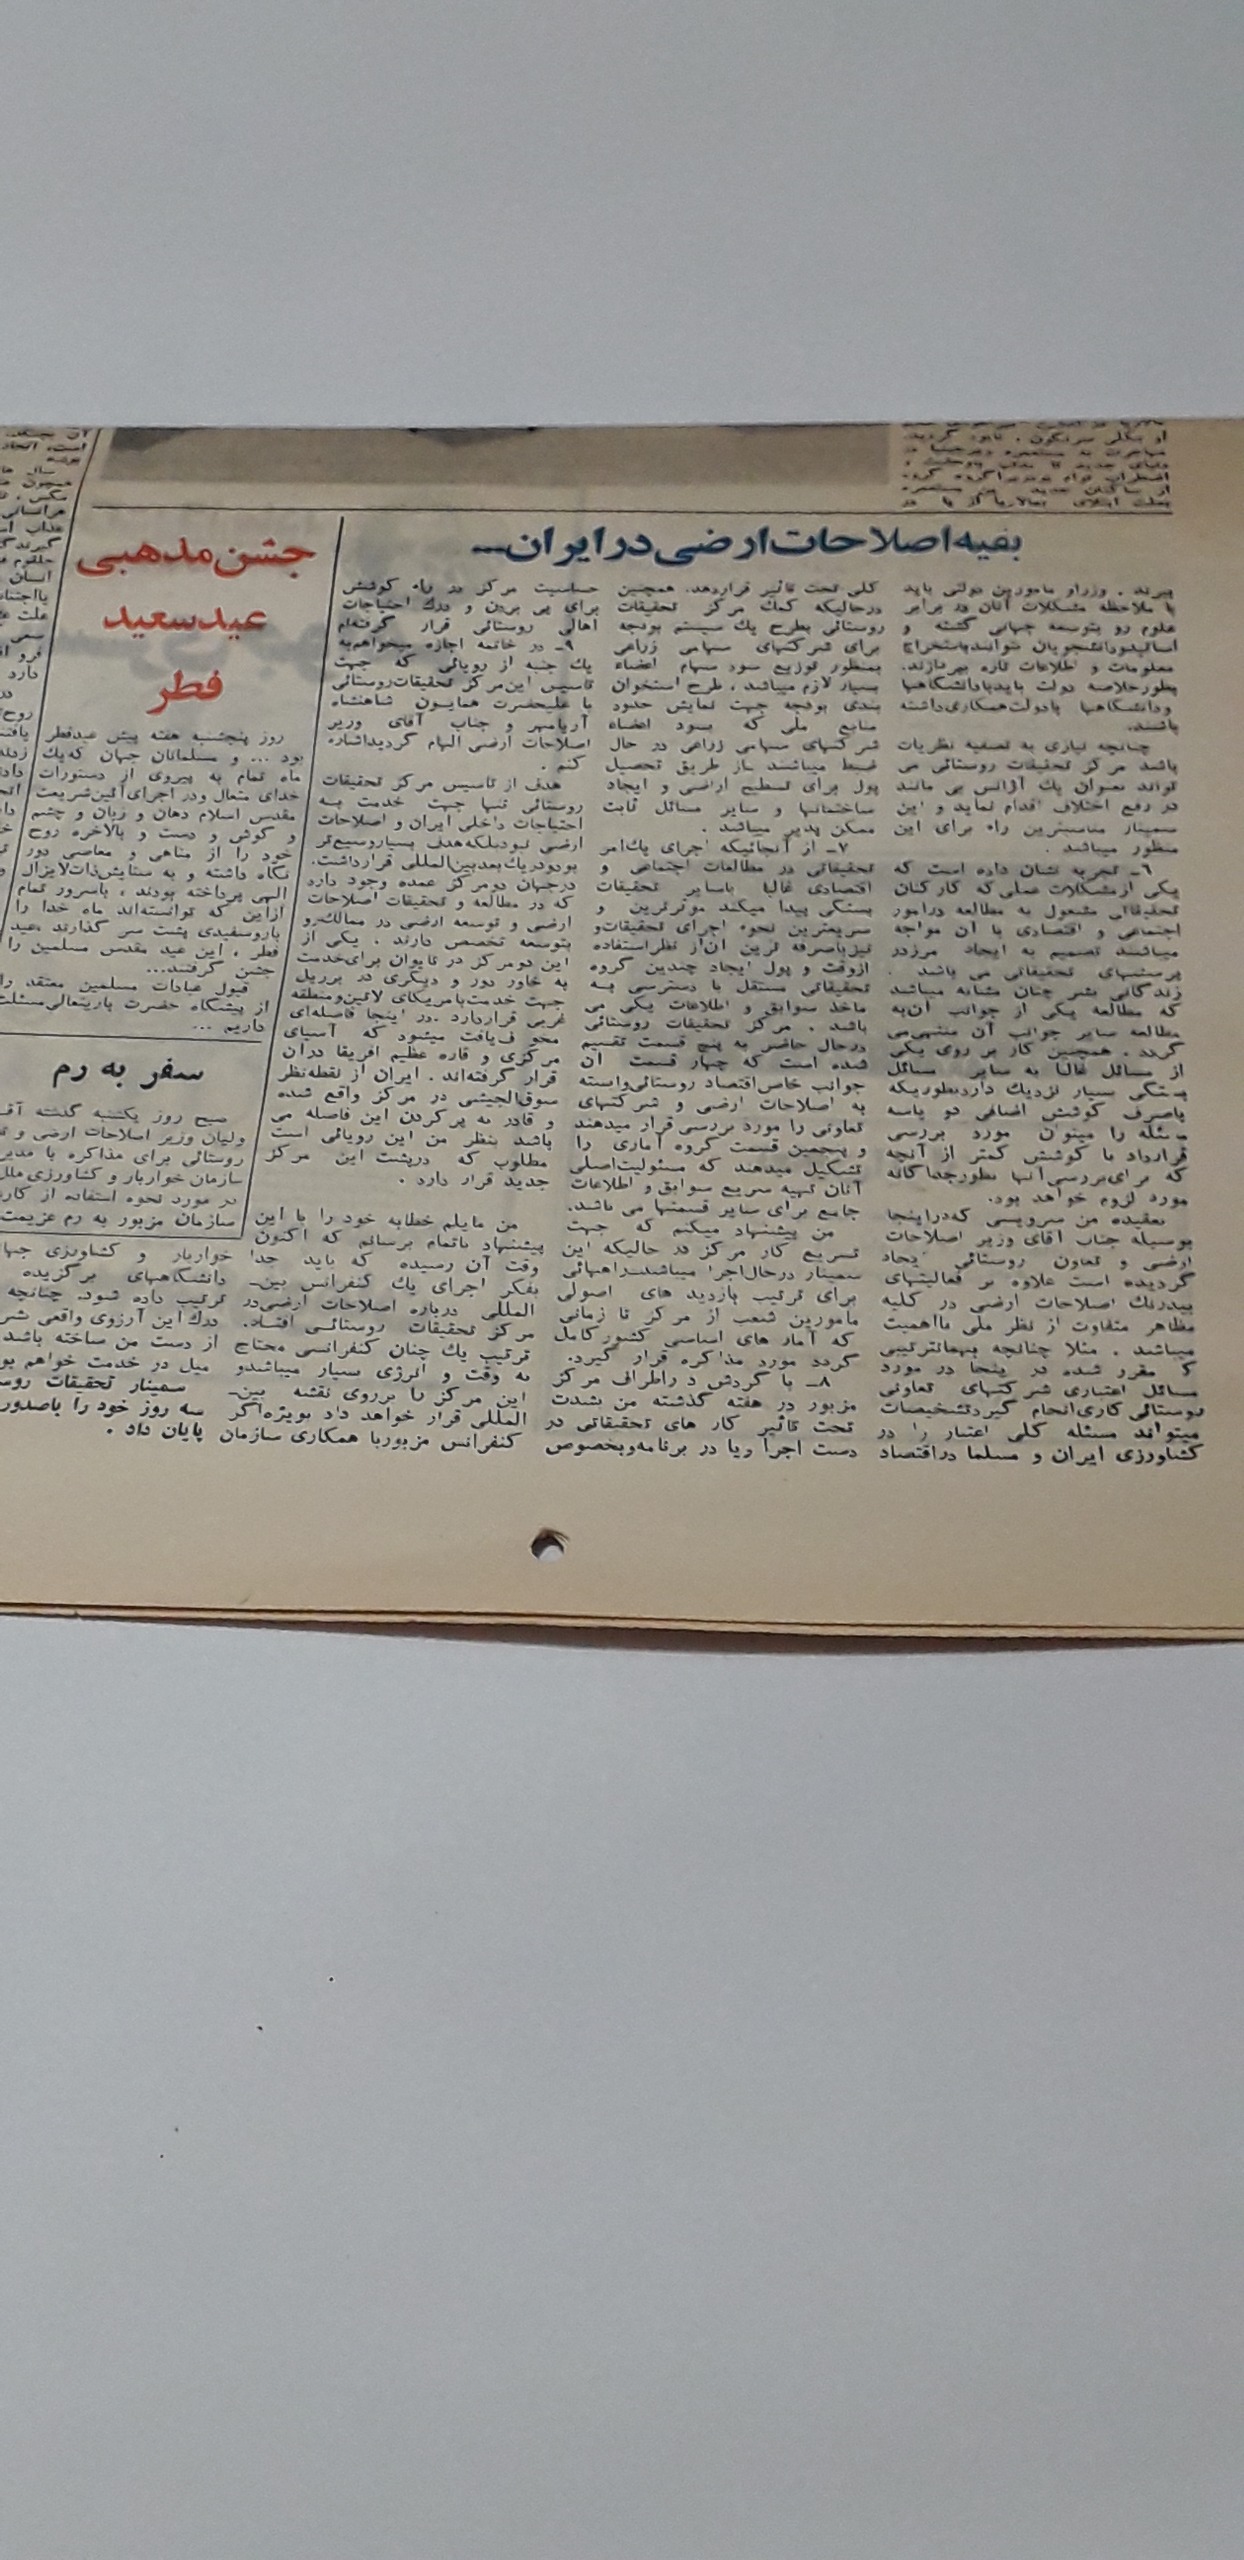 بقیه اصلاحات ارضی در ایران...
ببرند . وزراو مامورین دولتی باید
با ملاحظه مشکلات آنان در برابر
علوم رو بتوسعه جهانی گشته و
اساتیدودانشجویان بتوانندباستخراج
معلومات و اطلاعات تازه بپردازند.
بطورخلاصه دولت بایدبادانشگاهها
ودانشگاهها بادولت‌همکاری‌داشته
باشند.
چنانچه نیازی به تصفیه نظریات
باشد مرکز تحقیقات روستائی می
تواند بعنوان یك آژانس بی مانند
در رفع اختلاف اقدام نماید و این
سمینار مناسبترین راه برای این
منظور میباشد .
٦ـ تجربه نشان داده است که
یکی ازمشکلات عملی‌که کارکنان
تحقیقاتی مشغول به مطالعه درامور
اجتماعی و اقتصادی با آن مواجه
میباشند تصمیم به ایجاد مرزدر
پرسشهای تحقیقاتی می باشد .
زندگانی بشر چنان مشابه میباشد
که مطالعه یکی از جوانب آن‌به
مطالعه سایر جوانب آن منتهی‌می
گردد . همچنین کار بر روی یکی
از مسائل غالبا به سایر مسائل
بستگی بسیار نزدیك داردبطوریکه
باصرف کوشش اضافی دو یاسه
مسئله را میتوان مورد بررسی
قرارداد با کوشش کمتر از آنچه
که برای‌بررسی‌آنها بطورجداگانه
مورد لزوم خواهد بود.
بعقیده من سرویسی که‌دراینجا
بوسیله جناب آقای وزیر اصلاحات
ارضی و تعاون روستائی ایجاد
گردیده است علاوه بر فعالیتهای
بیدرنك اصلاحات ارضی در کلیه
مظاهر متفاوت از نظر ملی بااهمیت
میباشد . مثلا چنانچه بهمانترتیبی
که مقرر شده در اینجا در مورد
مسائل اعتباری شرکتهای تعاونی
روستائی کاری‌انجام گیردتشخیصات
میتواند مسئله کلی اعتبار را در
کشاورزی ایران و مسلما دراقتصاد
کلی تحت تاثیر قراردهد. همچنین
درحالیکه کمك مرکز تحقیقات
روستائی بطرح یك سیستم بودجه
برای شرکتهای سهامی زراعی
بمنظور توزیع سود سهام اعضاء
بسیار لازم میباشد ، طرح استخوان
بندی بودجه جهت نمایش حدود
منابع ملی که بسود اعضاء
شرکتهای سهامی زراعی در حال
ضبط میباشند از طریق تحصیل
پول برای تسطیح اراضی و ایجاد
ساختمانها و سایر مسائل ثابت
ممکن پذیر میباشد .
٧ـ از آنجائیکه اجرای یك‌امر
تحقیقاتی در مطالعات اجتماعی و
اقتصادی غالبا باسایر تحقیقات
بستگی پیدا میکند موثرترین و
سریعترین نحوه اجرای تحقیقات‌و
نیزباصرفه ترین آن‌از نظراستفاده
ازوقت و پول ایجاد چندین گروه
تحقیقاتی مستقل با دسترسی به
ماخذ سوابق و اطلاعات یکی می
باشد . مرکز تحقیقات روستائی
درحال حاضر به پنج قسمت تقسیم
شده است که چهار قسمت آن
جوانب خاص‌اقتصاد روستائی‌وابسته
به اصلاحات ارضی و شرکتهای
تعاونی را مورد بررسی قرار میدهند
و پنجمین قسمت گروه آماری را
تشکیل میدهند که مسئولیت‌اصلی
آنان تهیه سریع سوابق و اطلاعات
جامع برای سایر قسمتها می باشد.
من پیشنهاد میکنم که جهت
تسریع کار مرکز در حالیکه این
سمینار درحال‌اجرا میباشدـراههائی
برای ترتیب بازدید های اصولی
مامورین شعب از مرکز تا زمانی
که آمار های اساسی کشور کامل
گردد مورد مذاکره قرار گیرد.
٨ـ با گردش در اطراف مرکز
مزبور در هفته گذشته من بشدت
تحت تاثیر کار های تحقیقاتی در
دست اجرا ویا در برنامه‌وبخصوص
حساسیت مرکز در راه کوشش
برای پی بردن و درك احتیاجات
اهالی روستائی قرار گرفته‌ام
٩ـ در خاتمه اجازه میخواهم‌به
یك جنبه از رویائی که جهت
تاسیس این‌مرکز تحقیقات‌روستائی
با علیحضرت همایون شاهنشاه
آریامهر و جناب آقای وزیر
اصلاحات ارضی الهام گردیداشاره
کنم .
هدف از تاسیس مرکز تحقیقات
روستائی تنها جهت خدمت به
احتیاجات داخلی ایران و اصلاحات
ارضی نبودبلکه‌هدف بسیاروسیع‌تر
بودودریك‌بعدبین‌المللی قرارداشت.
درجهان دومرکز عمده وجود دارد
که در مطالعه و تحقیقات اصلاحات
ارضی و توسعه ارضی در ممالك‌رو
بتوسعه تخصص دارند . یکی از
این دومرکز در تایوان برای‌خدمت
به خاور دور و دیگری در برزیل
جهت خدمت‌بامریکای لاتین‌ومنطقه
غربی قراردارد .در اینجا فاصله‌ای
مخوف‌یافت میشود که آسیای
مرکزی و قاره عظیم افریقا درآن
قرار گرفته‌اند . ایران از نقطه‌نظر
سوق‌الجیشی در مرکز واقع شده
و قادر به پرکردن این فاصله می
باشد بنظر من این رویائی است
مطلوب که درپشت این مرکز
جدید قرار دارد .
من مایلم خطابه خود را با این
پیشنهاد باتمام برسانم که اکنون
وقت آن رسیده که باید جدا
بفکر اجرای یك کنفرانس بین‌ـ
المللی درباره اصلاحات ارضی‌در
مرکز تحقیقات روستائی افتاد.
ترتیب یك چنان کنفرانسی محتاج
به وقت و انرژی بسیار میباشدو
این مرکز را برروی نقشه بین‌ـ
المللی قرار خواهد داد بویژه‌اگر
کنفرانس مزبوربا همکاری سازمان
خواربار و کشاورزی
دانشگاههای برگزیده
ترتیب داده شود. چنانچه
درك این آرزوی واقعی
از دست من ساخته باشد
میل در خدمت خواهم
سمینار تحقیقات
سه روز خود را باصدور
پایان داد .
جشن مذهبی
عید سعید
فطر
روز پنجشنبه هفته پیش عیدفطر
بود ... و مسلمانان جهان که‌یك
ماه تمام به پیروی از دستورات
خدای متعال ودر اجرای‌آئین‌شریعت
مقدس اسلام دهان و زبان و چشم
و گوش و دست و بالاخره روح
خود را از مناهی و معاصی دور
نگاه داشته و به ستایش‌ذات‌لایزال
الهی پرداخته بودند ، باسرور تمام
ازاین که توانسته‌اند ماه خدا را
باروسفیدی پشت سر گذارند ،عید
فطر ، این عید مقدس مسلمین را
جشن گرفتند...
قبول عبادات مسلمین معتقد را
از پیشگاه حضرت باریتعالی‌مسئلت
داریم ...
سفر به رم
صبح روز یکشنبه گذشته
ولیان وزیر اصلاحات ارضی و
روستائی برای مذاکره با
سازمان خواربار و کشاورزی
در مورد نحوه استفاده از
سازمان مزبور به رم عزیمت